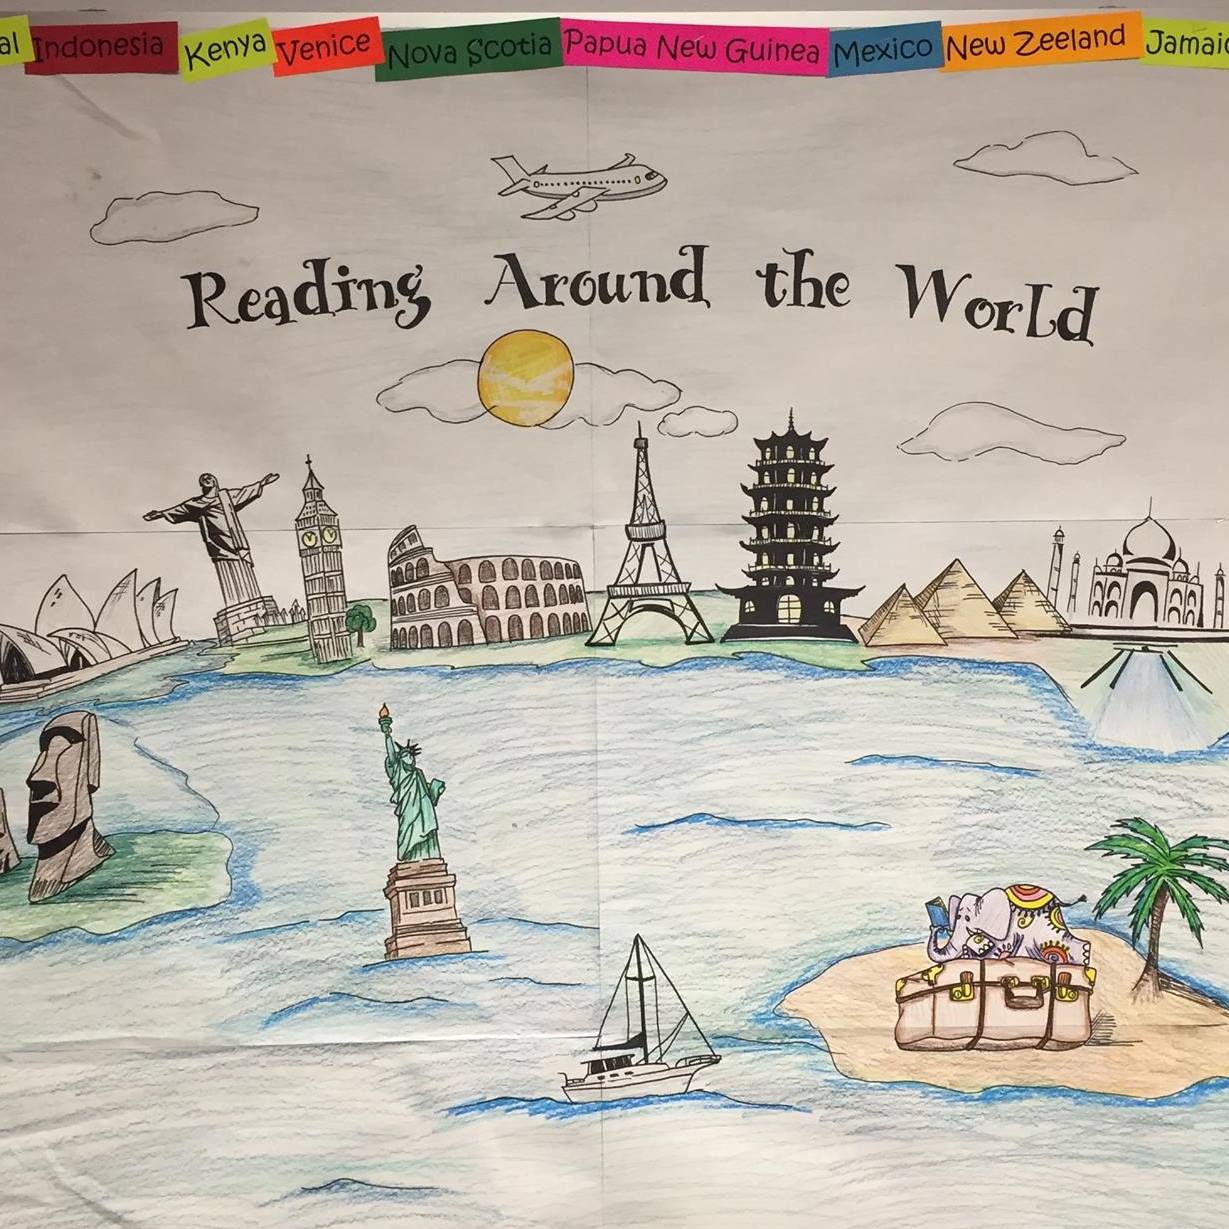 al Indonesia Kenya Venice Nova Scotia Papua New Guinea Mexico New Zeeland Jamaic
Reading Around the World